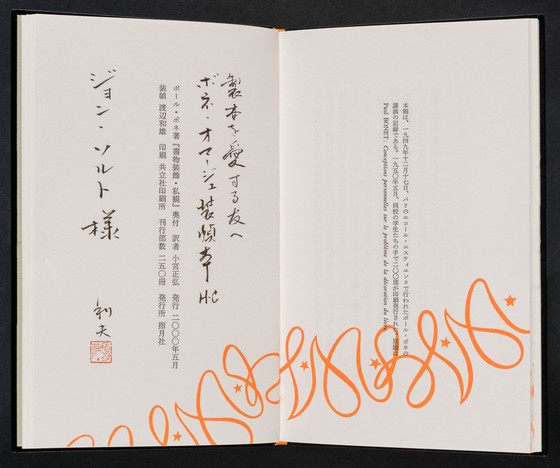 本稿は、一九四九年十二月十七日、パリのエコール・エスティエンヌで行われたポール・ボネの
講演の記録である。一九五〇年五月、同校の学生たちの手で二〇〇部が印刷発行された。原題は
Paul BONET: Conceptions personnelles sur le problème de la décoration du livre.
製本を愛する友へ
ボネ・オマージュ装幀本 H.C
ポール・ボネ著『書物装飾・私観』奥付 訳者 小宮正弘 発行 二〇〇〇年五月
装幀 渡辺和雄 印刷 共立社印刷所 刊行部数 二五〇冊 発行所 指月社
ジョン・ソルト様